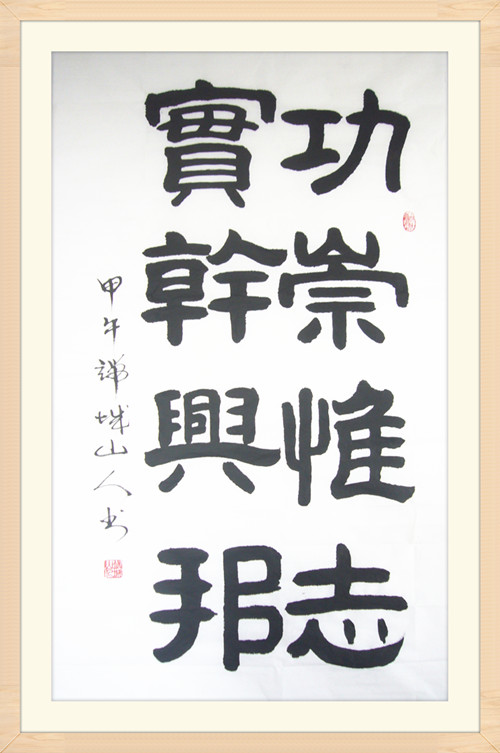 功崇惟志
實幹興邦
甲午城山人书